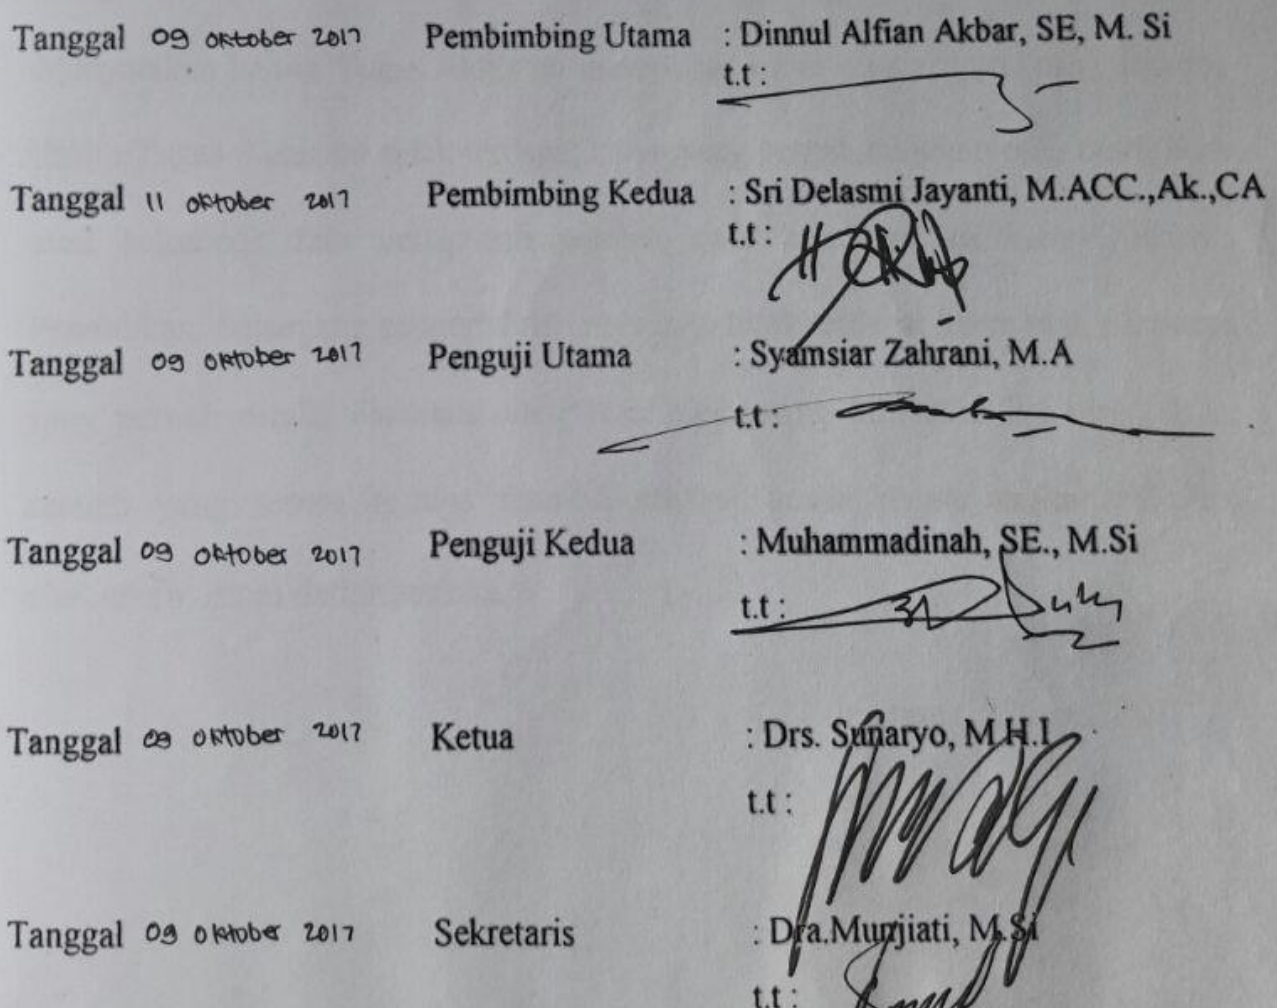 Tanggal 09 oktober 2017 Pembimbing Utama : Dinnul Alfian Akbar, SE, M. Si
t.t :
Tanggal 11 oktober 2017 Pembimbing Kedua : Sri Delasmi Jayanti, M.ACC.,Ak.,CA
t.t :
Tanggal 09 oktober 2017 Penguji Utama : Syamsiar Zahrani, M.A
t.t :
Tanggal 09 oktober 2017 Penguji Kedua : Muhammadinah, SE., M.Si
t.t :
Tanggal 09 oktober 2017 Ketua : Drs. Sunaryo, M.H.I
t.t :
Tanggal 09 oktober 2017 Sekretaris : Dra.Munjiati, M.Si
t.t :